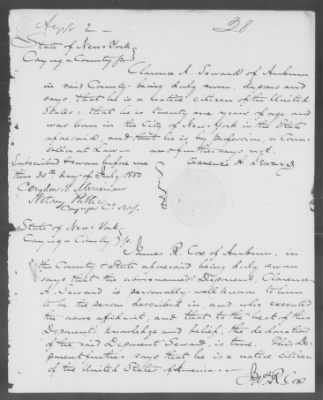 28
State of New York
Cayuga County ss
Clarence A. Seward of Auburn
in said County being duly sworn, deposes and
says that he is a native citizen of the United
States: that he is twenty one years of age and
was born in the City of New-York in the State
aforesaid, and that he is, by profession, a Coun-
sellor at Law
Clarence A. Seward
Subscribed & sworn before me
this 30th day of July 1850
Notary Public
Cayuga Co. N.Y.
State of New-York
Cayuga County ss.
James R. Cox of Auburn, in
the County & State aforesaid being duly sworn
says that the above named Deponent, Clarence
A. Seward is personally well known to him
to be the person described in, and who executed
the above affidavit, and that to the best of this
Deponent's knowledge and belief, the declaration
of the said Deponent Seward, is true. This De-
ponent further says that he is a native citizen
of the United States of America.
Jas. R. Cox